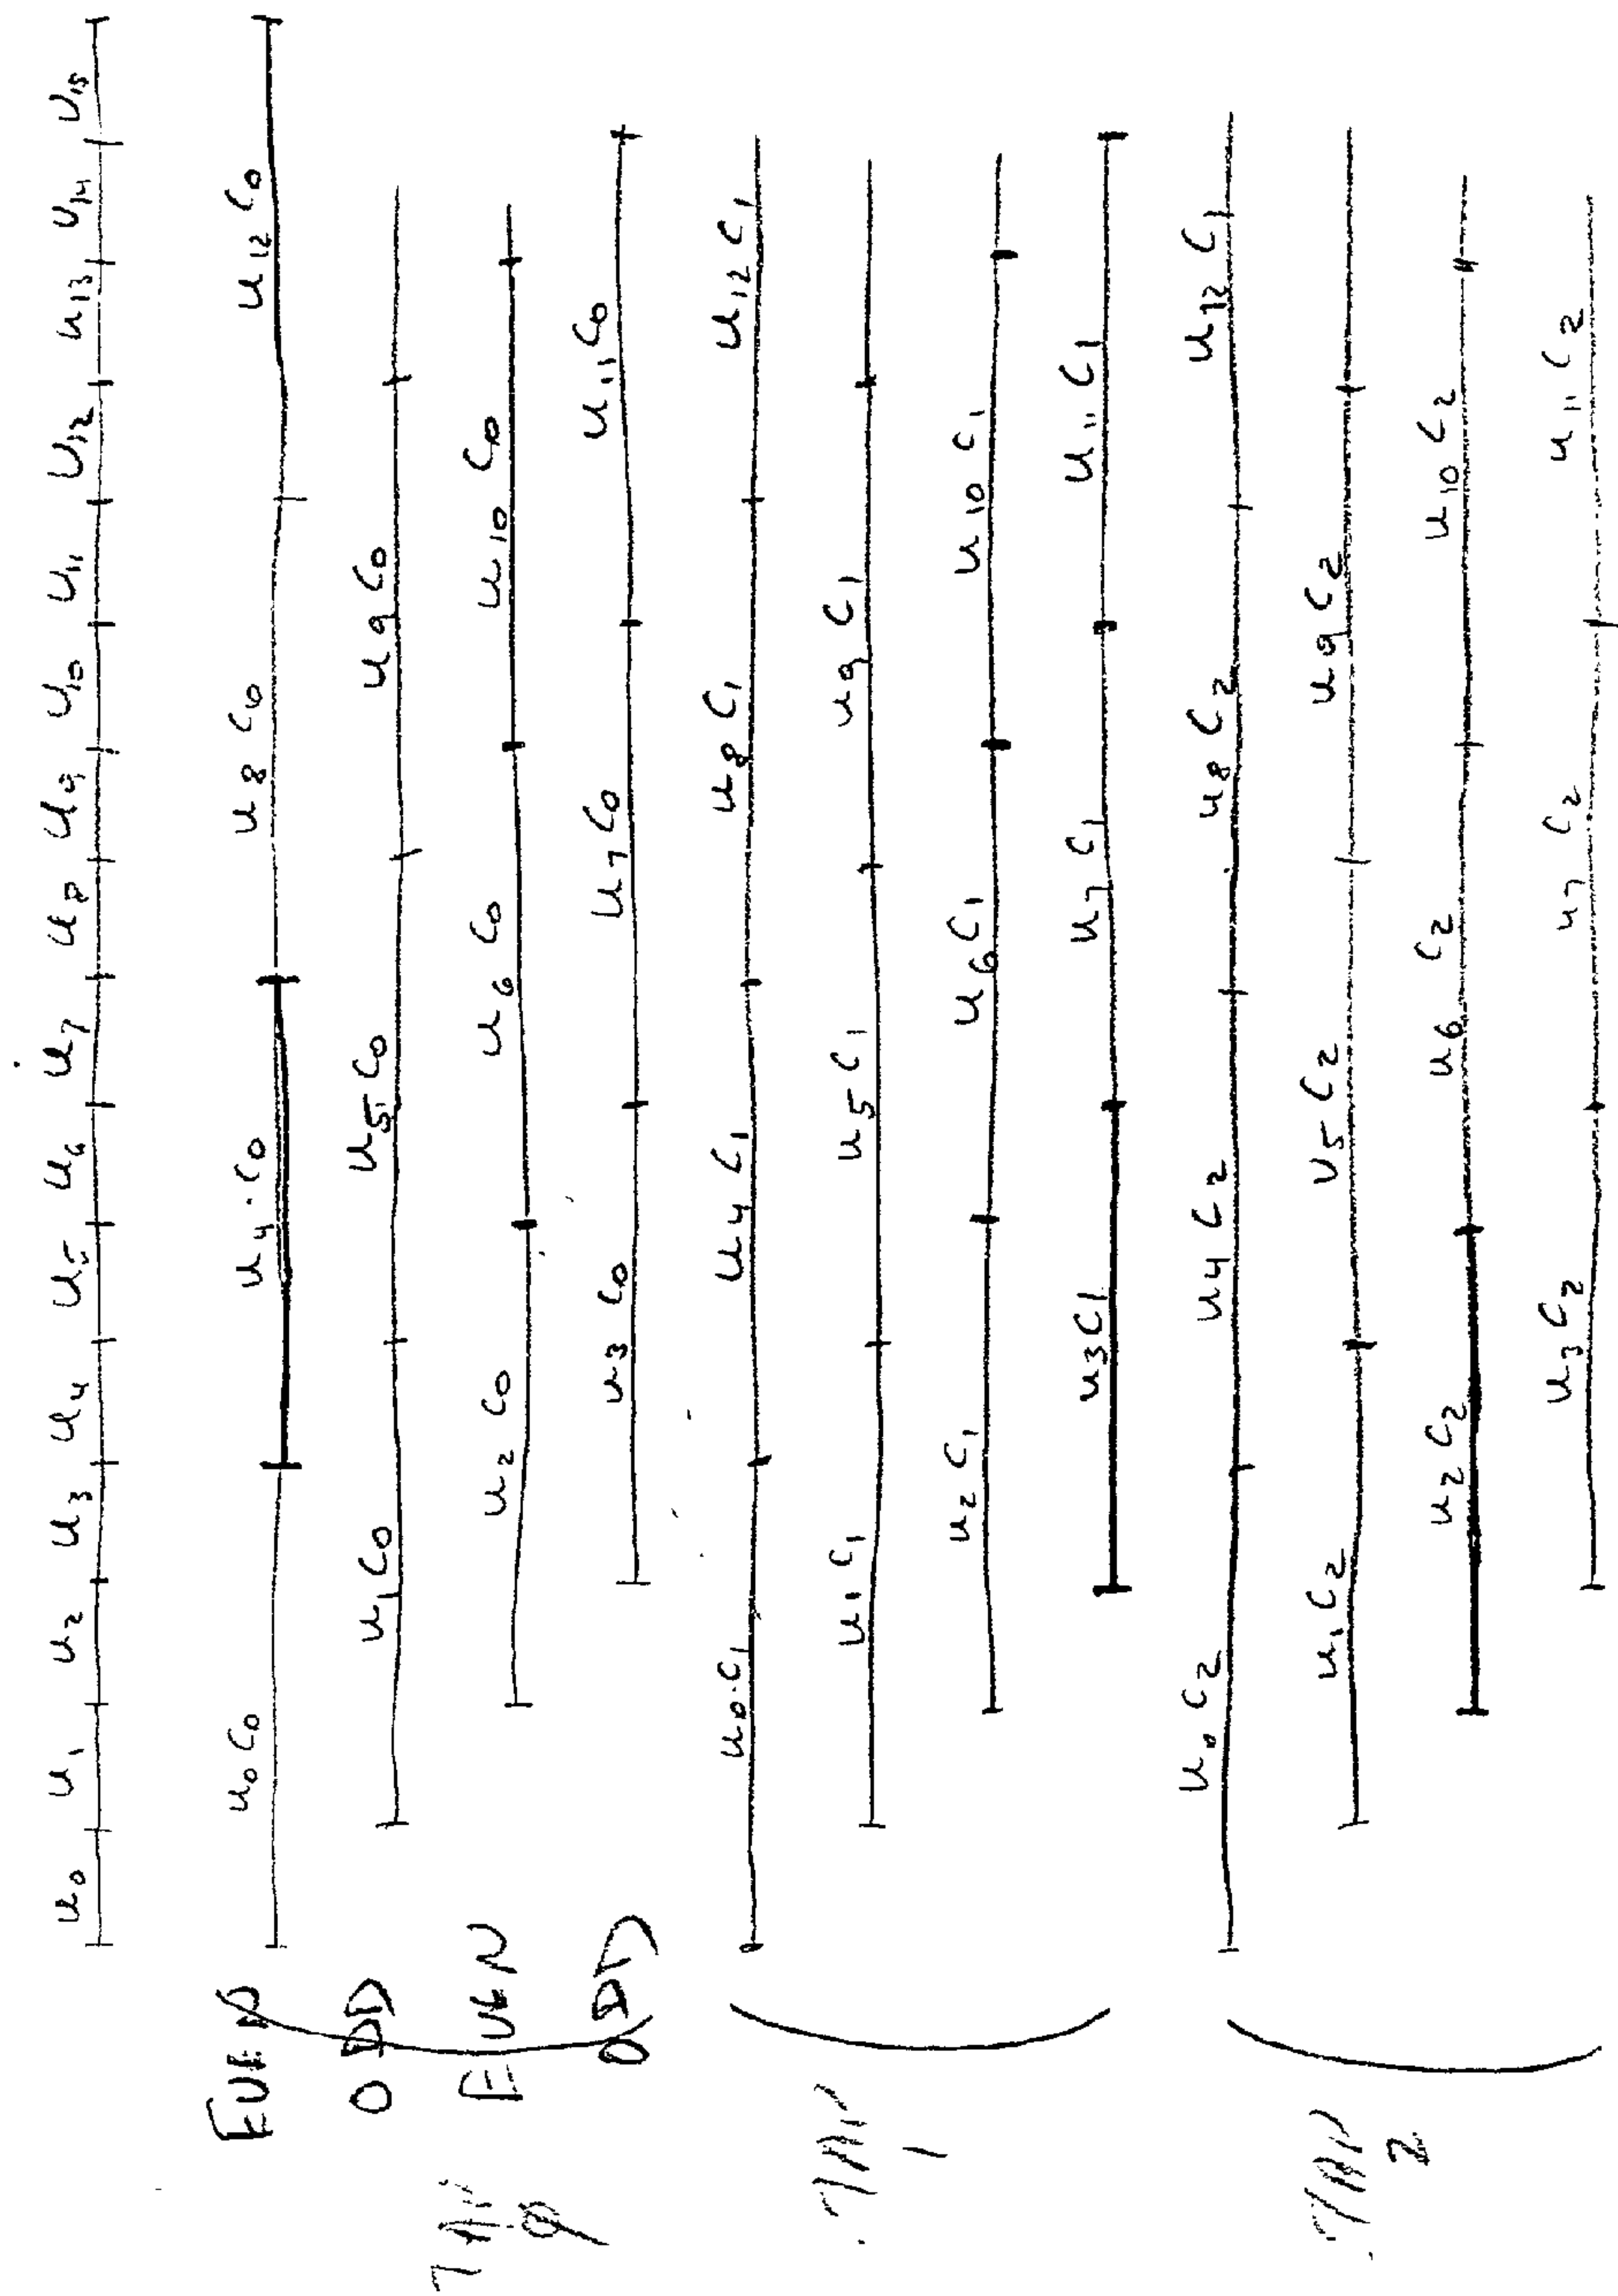 u0 u1 u2 u3 u4 u5 u6 u7 u8 u9 u10 u11 u12 u13 u14 u15
EVEN u0C0 u4·C0 u8C0 u12C0
ODD u1C0 u5C0 u9C0
TAP 0
EVEN u2C0 u6C0 u10C0
ODD u3C0 u7C0 u11C0
u0·C1 u4C1 u8C1 u12C1
TAP 1
u1C1 u5C1 u9C1
u2C1 u6C1 u10C1
u3C1 u7C1 u11C1
u0C2 u4C2 u8C2 u12C1
TAP 2
u1C2 u5C2 u9C2
u2C2 u6C2 u10C2
u3C2 u7C2 u11C2